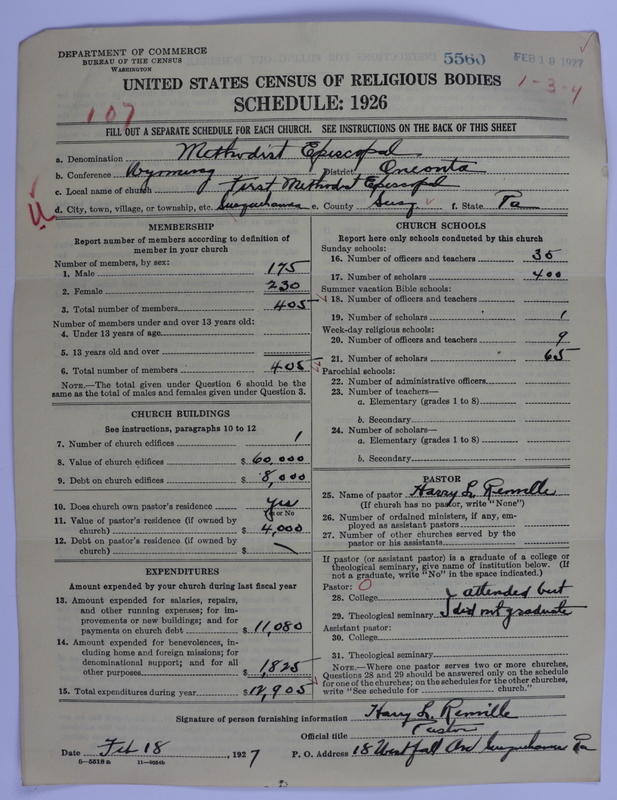 DEPARTMENT OF COMMERCE
BUREAU OF THE CENSUS
WASHINGTON
5560
FEB 18 1927
UNITED STATES CENSUS OF RELIGIOUS BODIES
1-3-4
SCHEDULE: 1926
107
FILL OUT A SEPARATE SCHEDULE FOR EACH CHURCH. SEE INSTRUCTIONS ON THE BACK OF THIS SHEET
a. Denomination Methodist Episcopal
b. Conference Wyoming District Oneonta
c. Local name of church First Methodist Episcopal
d. City, town, village, or township, etc. Susquehanna e. County Susq f. State Pa
MEMBERSHIP
Report number of members according to definition of
member in your church
Number of members, by sex:
1. Male 175
2. Female 230
3. Total number of members 405
Number of members under and over 13 years old:
4. Under 13 years of age
5. 13 years old and over
6. Total number of members 405
NOTE.—The total given under Question 6 should be the
same as the total of males and females given under Question 3.
CHURCH BUILDINGS
See instructions, paragraphs 10 to 12
7. Number of church edifices 1
8. Value of church edifices $ 60,000
9. Debt on church edifices $ 8,000
10. Does church own pastor's residence yes
Yes or No
11. Value of pastor's residence (if owned by
church) $ 4,000
12. Debt on pastor's residence (if owned by
church) $ —
EXPENDITURES
Amount expended by your church during last fiscal year
13. Amount expended for salaries, repairs,
and other running expenses; for im-
provements or new buildings; and for
payments on church debt $ 11,080
14. Amount expended for benevolences, in-
cluding home and foreign missions; for
denominational support; and for all
other purposes $ 1,825
15. Total expenditures during year $ 12,905
CHURCH SCHOOLS
Report here only schools conducted by this church
Sunday schools:
16. Number of officers and teachers 35
17. Number of scholars 400
Summer vacation Bible schools:
18. Number of officers and teachers
19. Number of scholars 1
Week-day religious schools:
20. Number of officers and teachers 9
21. Number of scholars 65
Parochial schools:
22. Number of administrative officers
23. Number of teachers—
a. Elementary (grades 1 to 8)
b. Secondary
24. Number of scholars—
a. Elementary (grades 1 to 8)
b. Secondary
PASTOR
25. Name of pastor Harry L. Renville
(If church has no pastor, write "None")
26. Number of ordained ministers, if any, em-
ployed as assistant pastors
27. Number of other churches served by the
pastor or his assistants
If pastor (or assistant pastor) is a graduate of a college or
theological seminary, give name of institution below. (If
not a graduate, write "No" in the space indicated.)
Pastor: O
28. College I attended but
29. Theological seminary I did not graduate
Assistant pastor:
30. College
31. Theological seminary
NOTE.—Where one pastor serves two or more churches,
Questions 28 and 29 should be answered only on the schedule
for one of the churches; on the schedules for the other churches,
write "See schedule for church."
Signature of person furnishing information Harry L. Renville
Official title Pastor
Date Feb 18, 1927 P. O. Address 18 West fall Av Susquehanna Pa
6—5518a 11—9054b